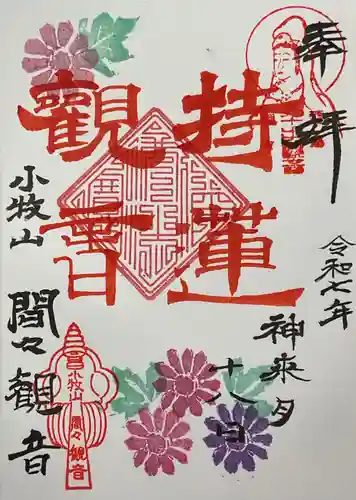 奉拝
令和七年
神来月
十八日
持蓮
觀音
小牧山
間々観音
小牧山
間々観音